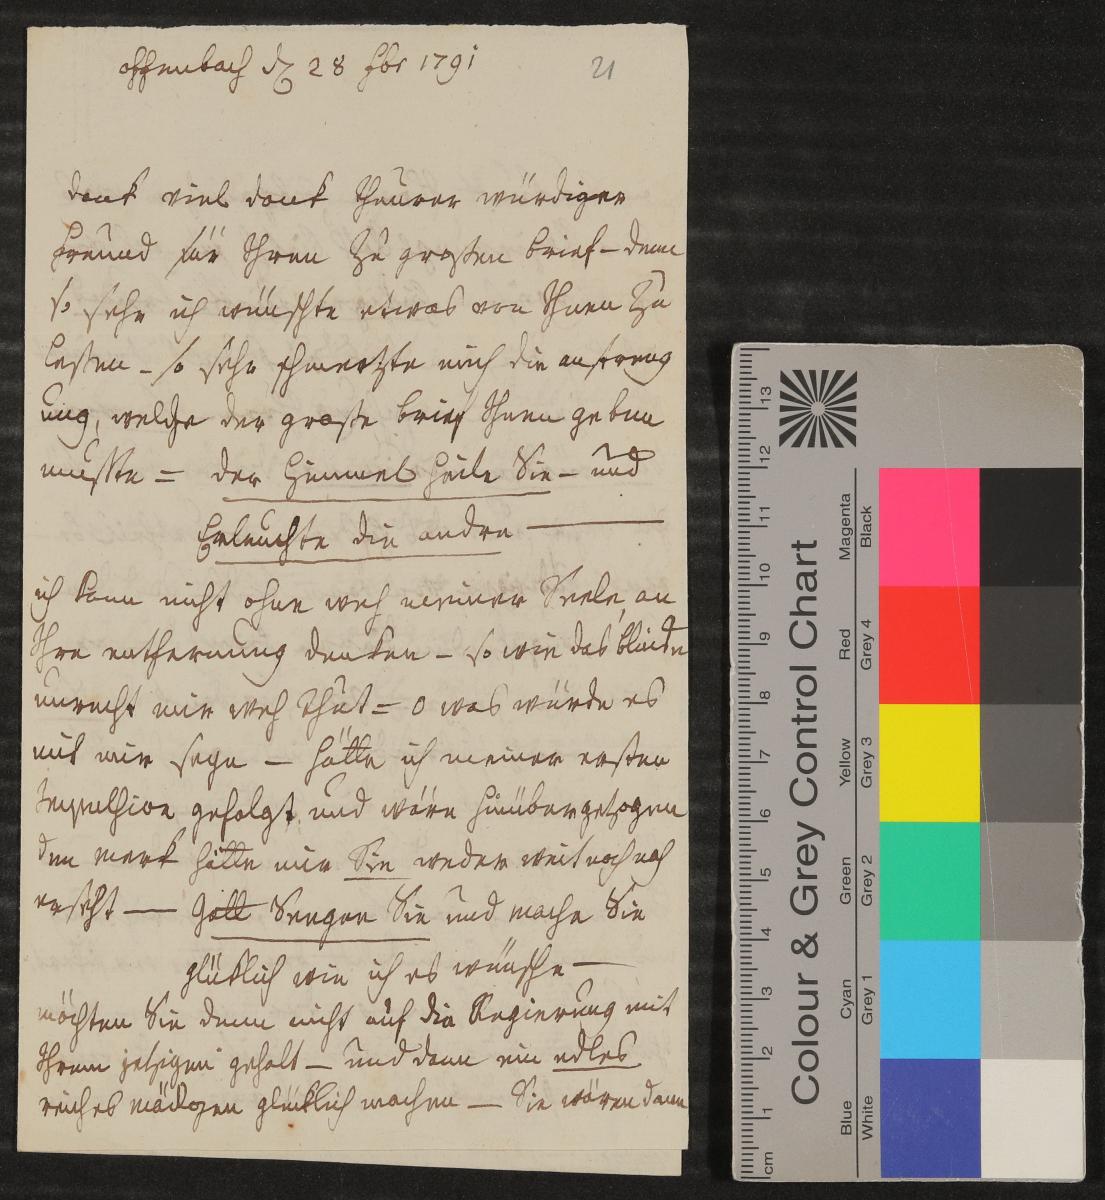 offenbach d 28 1791
21
dank viel dank theurer würdiger
freund für Ihren zu grosen brief – denn
so sehr ich wünschte etwas von Ihnen zu
lesen – so sehr schmerzte mich die anstreng
ung, welche der große brief Ihnen geben
muste = der Himmel heile Sie – und
Erleuchte die andre —
ich kann nicht ohne weh meiner Seele, an
Ihre entfernung denken – so wie das blinde
unrecht mir weh thut = o was würde es
mit mir seyn — hätte ich meiner ersten
Impulsion gefolgt und wäre hinüber gezogen
den merk hätte mir Sie weder weit noch nah
ersetzt — Gott Seegne Sie und mache Sie
glüklich wie ich es wünsche —
möchten Sie denn nicht auf die Regierung mit
Ihrem jetzigen gehalt — und dann ein edles
reiches mädgen glüklich machen — Sie wären dann
Colour & Grey Control Chart
Blue Cyan Green Yellow Red Magenta
White Grey 1 Grey 2 Grey 3 Grey 4 Black
cm 1 2 3 4 5 6 7 8 9 10 11 12 13